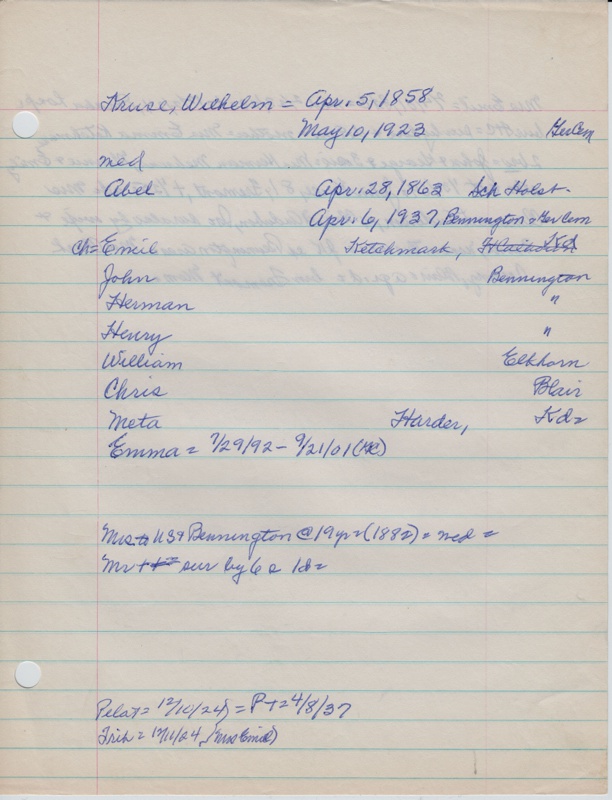 Kruse, Wilhelm = Apr. 5, 1858
May 10, 1923 GerCem
med
Abel Apr. 28, 1863 Sch Holst.
Apr. 6, 1937, Bennington = GerCem
Ch = Emil Ketchmark, Kd
John Bennington
Herman "
Henry "
William Elkhorn
Chris Blair
Meta Harder, Kd =
Emma = 7/29/92 - 9/21/01 (HC)
Mrs. to US & Bennington @ 19 yr = (1882) = med =
Mr sur by 6 s 1d =
= 12/10/24) = P + = 4/8/37
= 12/11/24, (Mrs Emil)